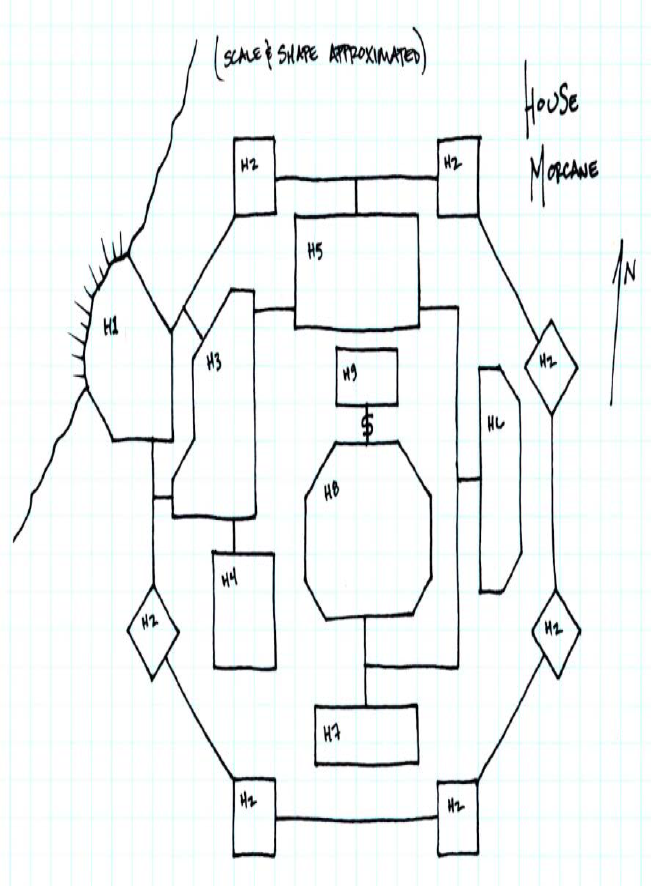 (SCALE & SHAPE APPROXIMATED)
HOUSE
MORCANE
H2
H2
H5
N
H1
H3
H9
H2
H6
$
H8
H4
H2
H2
H7
H2
H2